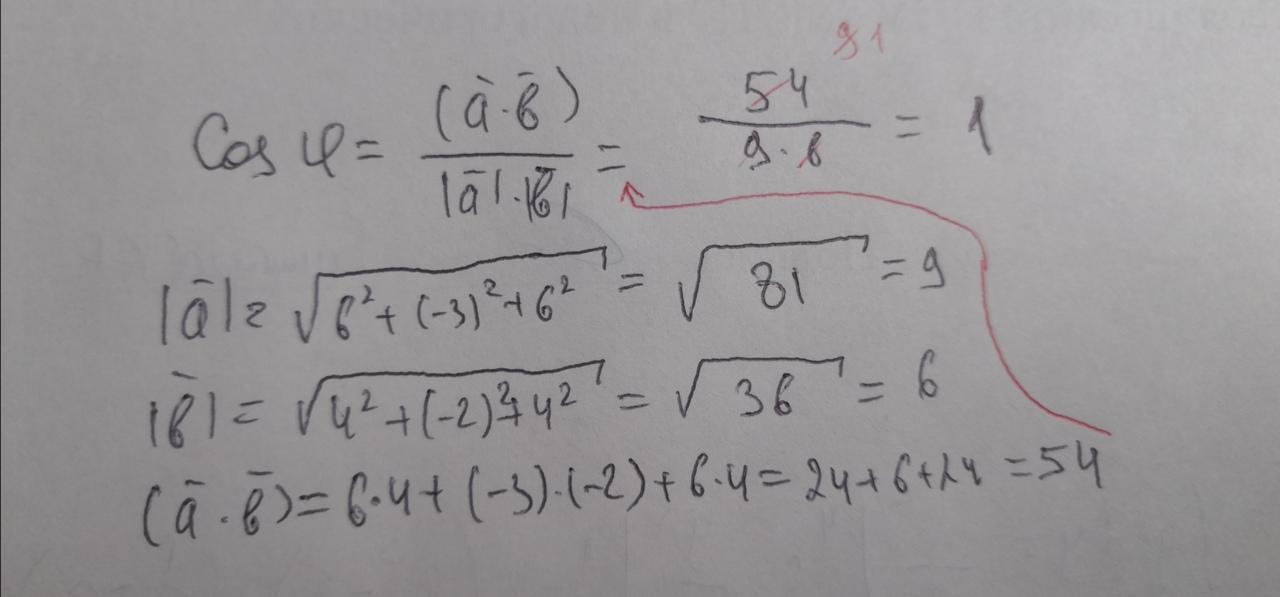 9 1
Cos φ = (ā·b̄) / |ā|·|b̄| = 54 / 9·6 = 1
|ā| = √6² + (-3)² + 6² = √81 = 9
|b̄| = √4² + (-2)² + 4² = √36 = 6
(ā·b̄) = 6·4 + (-3)·(-2) + 6·4 = 24 + 6 + 24 = 54